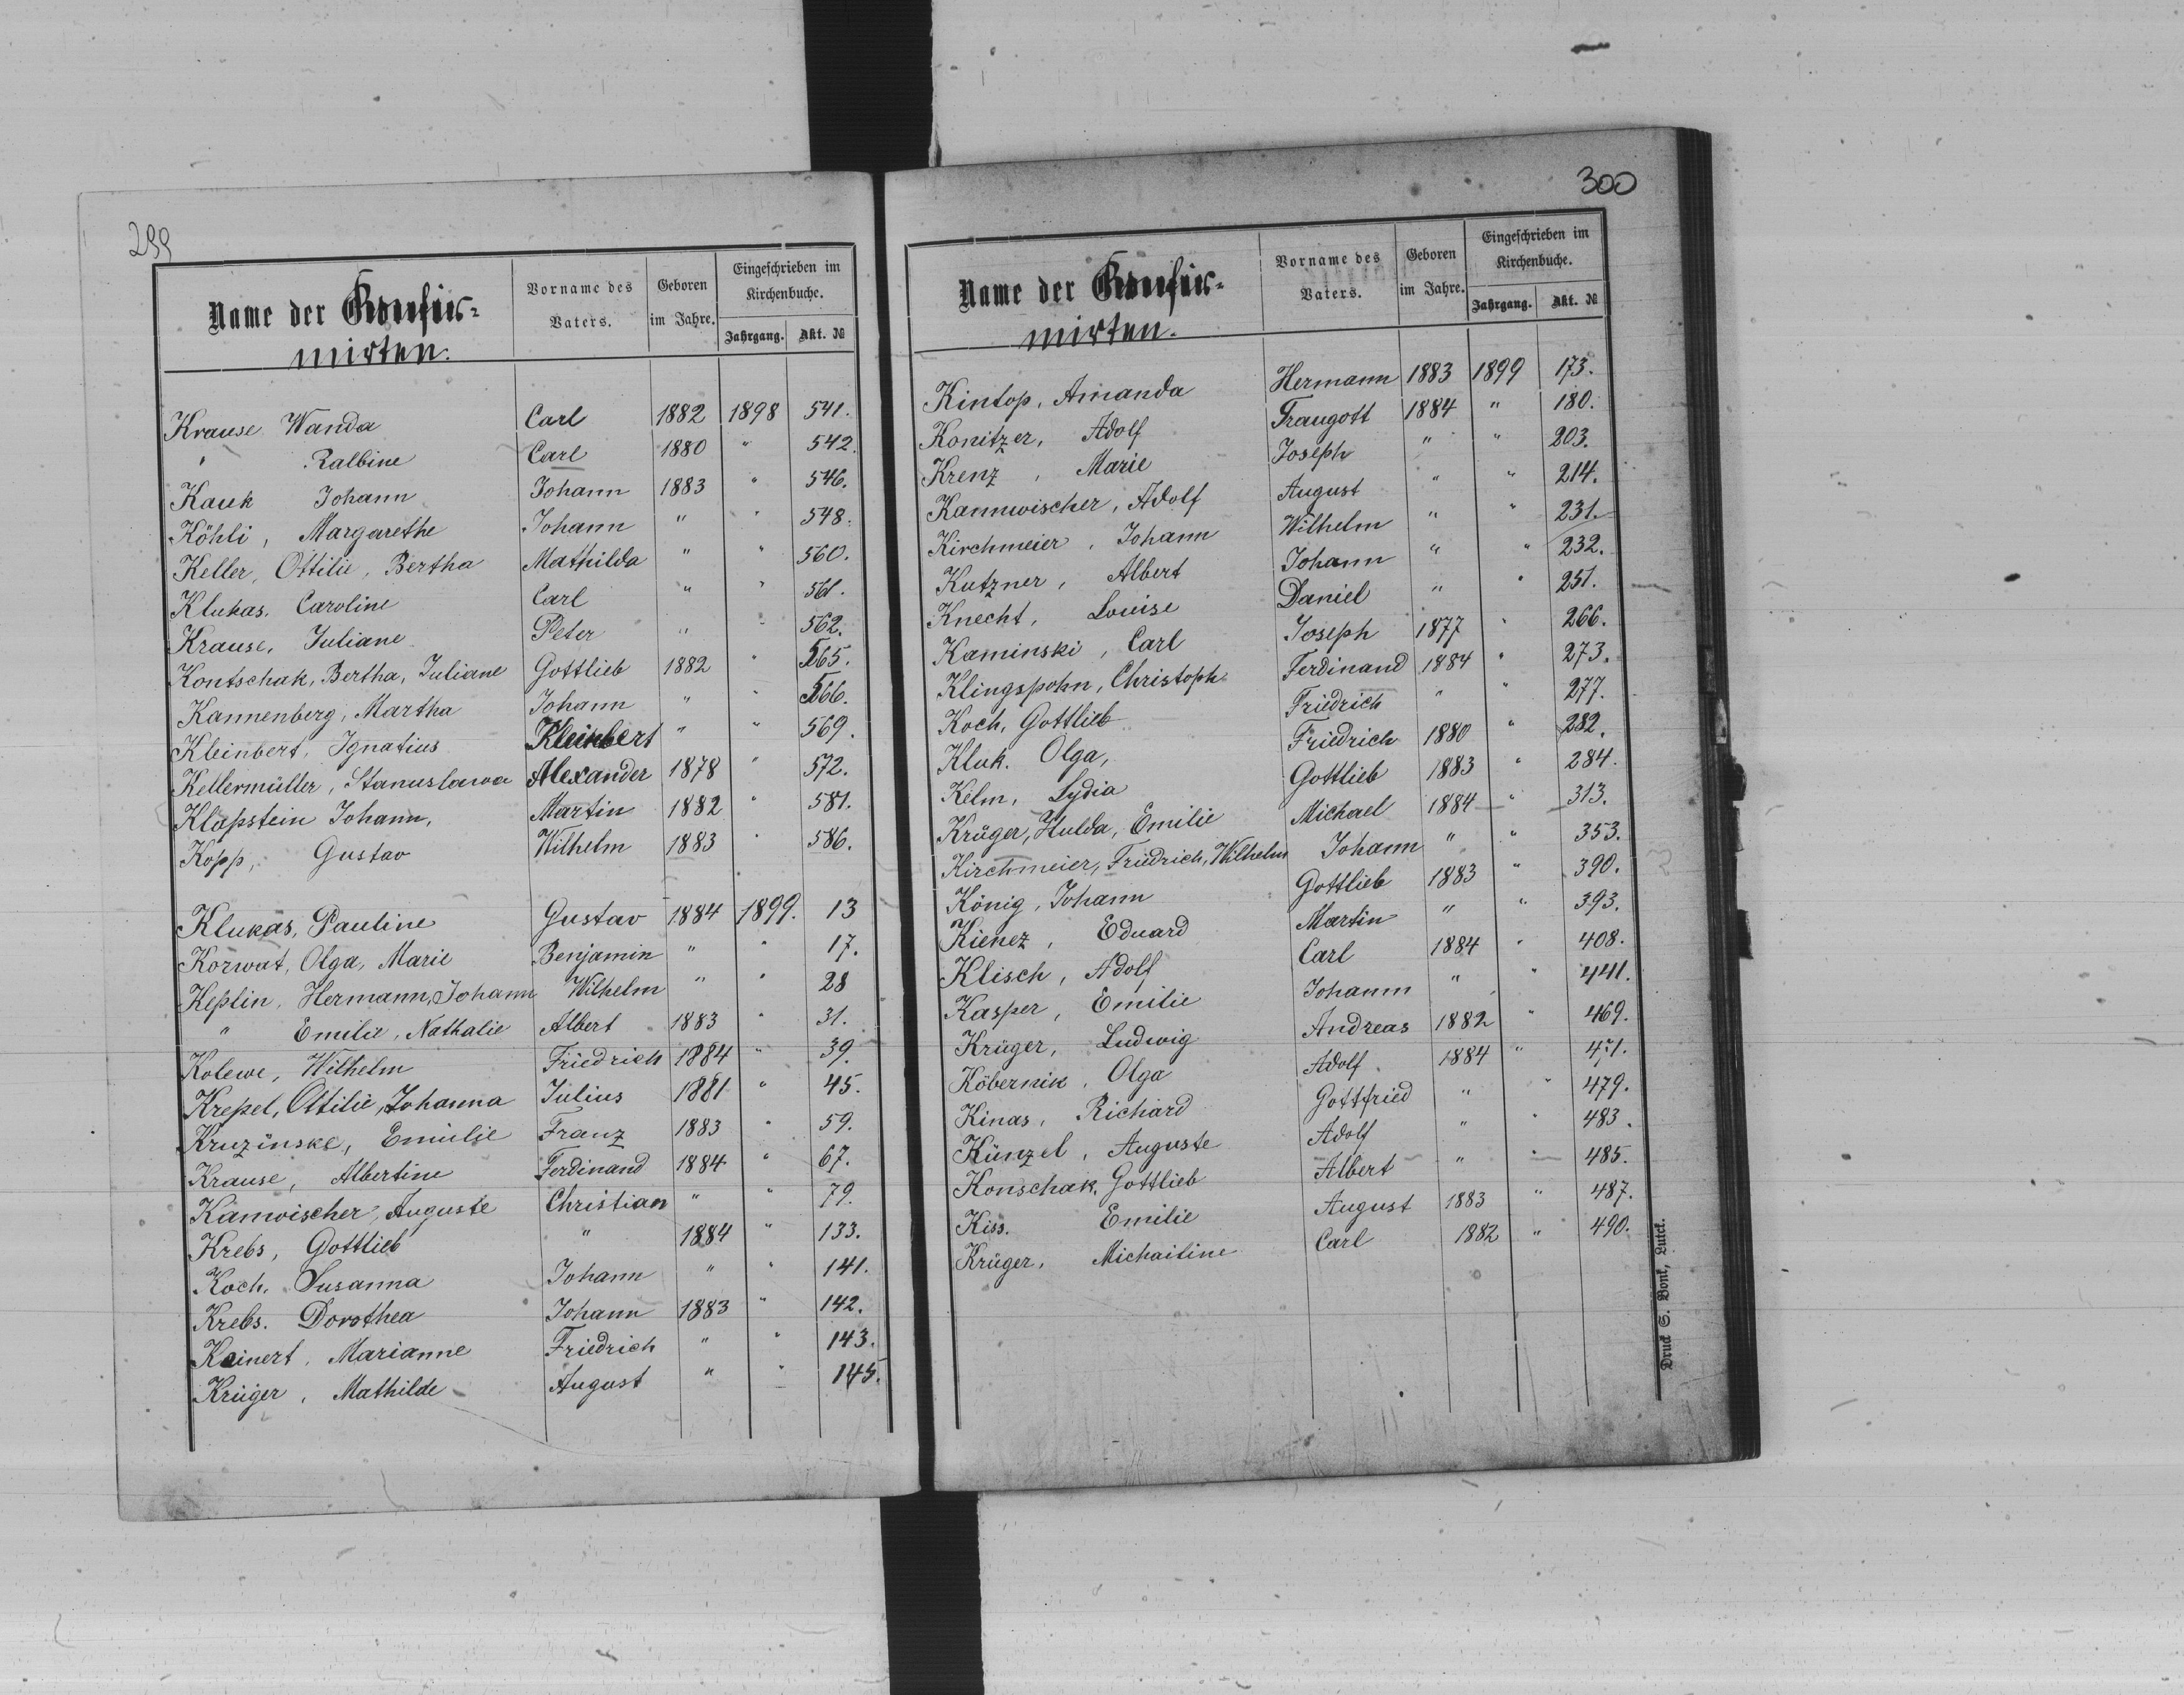 299
Name der Konfir-
mirten.
Vorname des Vaters.
Geboren im Jahre.
Eingeschrieben im Kirchenbuche.
Jahrgang. Akt. №
Krause Wanda Carl 1882 1898 541.
" Balbine Carl 1880 " 542.
Kauk Johann Johann 1883 " 546.
Köhli, Margarethe Johann " " 548.
Keller, Ottilie, Bertha Mathilda " " 560.
Klukas, Caroline Carl " " 561.
Krause, Juliane Peter " " 562.
Kontschak, Bertha, Juliane Gottlieb 1882 " 565.
Kannenberg, Martha Johann " " 566.
Kleinbert, Ignatius Kleinbert " " 569.
Kellermüller, Stanuslawa Alexander 1878 " 572.
Klapstein Johann, Martin 1882 " 581.
Kopp, Gustav Wilhelm 1883 " 586.
Klukas, Pauline Gustav 1884 1899. 13
Korwat, Olga, Marie Benjamin " " 17.
Keplin, Hermann, Johann Wilhelm " " 28
" Emilie, Nathalie Albert 1883 " 31.
Kolewe, Wilhelm Friedrich 1884 " 39.
Krepel, Ottilie, Johanna Julius 1881 " 45.
Kruzinske, Emilie Franz 1883 " 59.
Krause, Albertine Ferdinand 1884 " 67.
Kamvischer, Auguste Christian " " 79.
Krebs, Gottlieb " 1884 " 133.
Koch, Susanna Johann " " 141.
Krebs. Dorothea Johann 1883 " 142.
Keinert, Marianne Friedrich " " 143.
Krüger, Mathilde August " " 145.
300
Name der Konfir-
mirten.
Vorname des Vaters.
Geboren im Jahre.
Eingeschrieben im Kirchenbuche.
Jahrgang. Akt. №
Kintop, Amanda Hermann 1883 1899 173.
Konitzer, Adolf Traugott 1884 " 180.
Krenz, Marie Joseph " " 203.
Kannwischer, Adolf August " " 214.
Kirchmeier, Johann Wilhelm " " 231.
Kutzner, Albert Johann " " 232.
Knecht, Louise Daniel " " 251.
Kaminski, Carl Joseph 1877 " 266.
Klingspohn, Christoph Ferdinand 1884 " 273.
Koch, Gottlieb Friedrich " " 277.
Kluk. Olga, Friedrich 1880 " 282.
Kelm, Lydia Gottlieb 1883 " 284.
Krüger, Hulda, Emilie Michael 1884 " 313.
Kirchmeier, Friedrich, Wilhelm Johann " " 353.
König, Johann Gottlieb 1883 " 390.
Kienez, Eduard Martin " " 393.
Klisch, Adolf Carl 1884 " 408.
Kasper, Emilie Johann " " 441.
Krüger, Ludwig Andreas 1882 " 469.
Köbernik, Olga Adolf 1884 " 471.
Kinas, Richard Gottfried " " 479.
Künzel, Auguste Adolf " " 483.
Konschak, Gottlieb Albert " " 485.
Kiss. Emilie August 1883 " 487.
Krüger, Michailine Carl 1882 " 490.
Druck S. Bonk, Luzk.